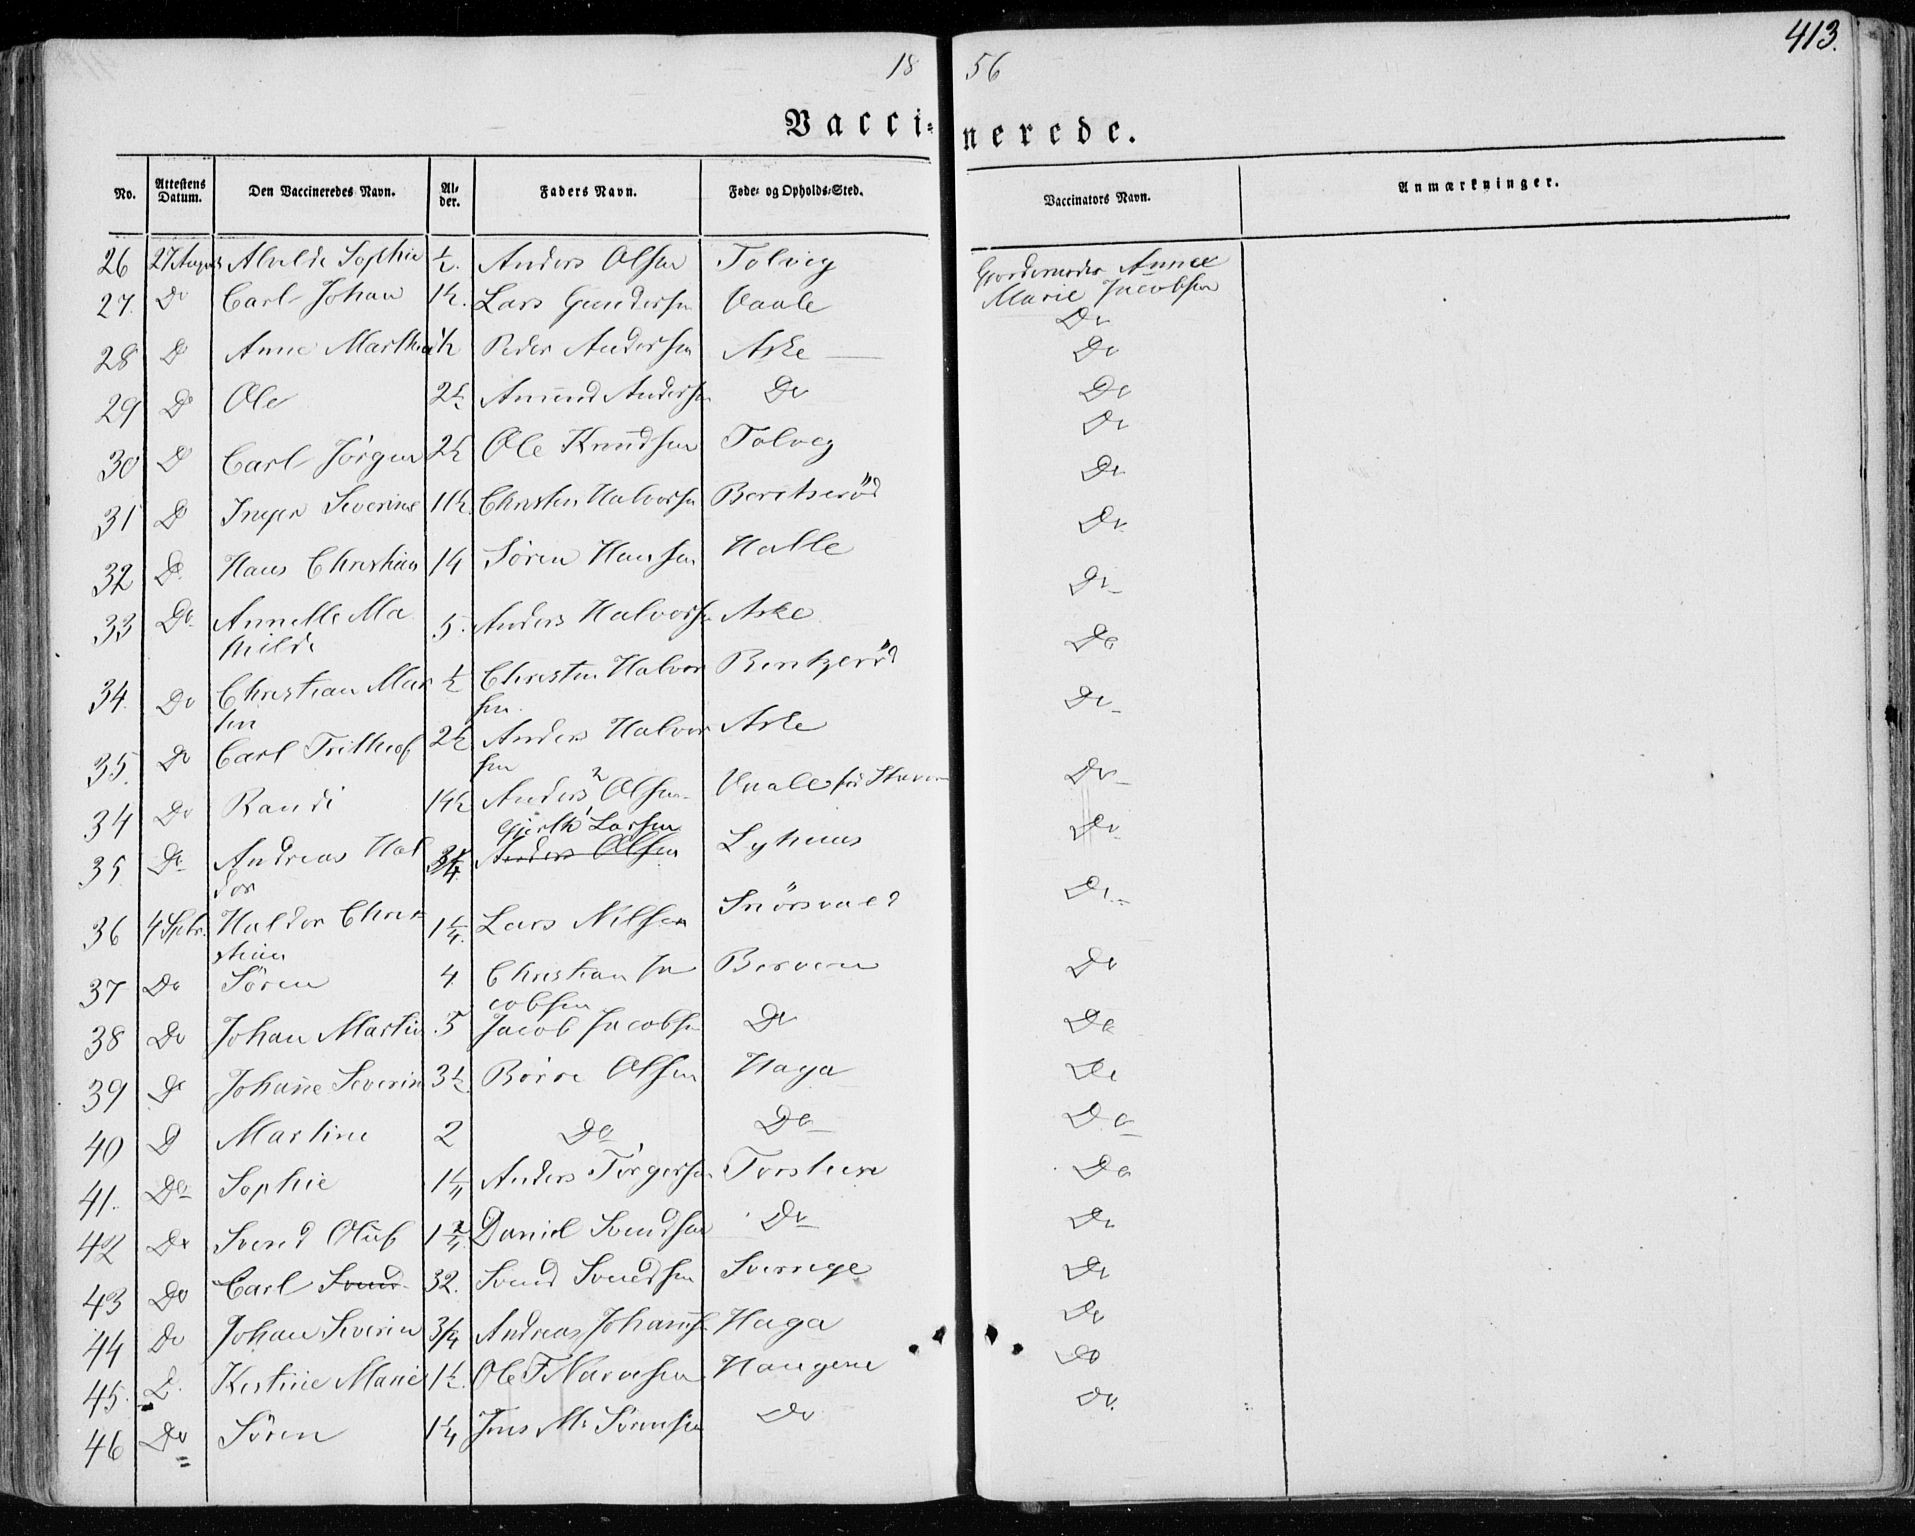 413.
18 56
Vacci-nerede.
No. Attestens Datum. Den Vaccineredes Navn. Al-der. Faders Navn. Føde- og Opholds-Sted. Vaccinators Navn. Anmærkninger.
26 27 August Alvilde Sophie ½. Anders Olsen Tolvig Gjordemoder Anne
Marie Jacobsen
27. Do Carl Johan 1½. Lars Gundersen Vaale Do
28 D Anne Marthea ½ Peder Andersen Aske Do
29 D Ole 2½ Amund Andersen Do Do
30 D Carl Jörgen 2½ Ole Knudsen Tolvig Do
31 D Inger Severine 11½ Christen Halvorsen Beritseröd Do
32 D. Hans Christian 14 Sören Hansen Halle Do.
33 Do Annette Ma 5. Anders Halvorsen Aske Do
thilde
34. Do Christian Mar ½ Christen Halvor Bentzeröd Do
tin sen.
35. Do Carl Fritheof 2½ Anders Halvor Aske Do
sen
34 Do Randi 14½ Anders Olsen Vaale for Do
Gjerth Larsen
35 Do Andreas Hal ¾ Anders Olsen Lyhuus Do
dor
36 4 Sptr. Haldor Chris 1¼. Lars Nilsen Snörsvald Do
tian
37 Do Sören 4 Christian Ja Berven Do
cobsen
38 Do Johan Martin 5 Jacob Jacobsen Do Do
39 Do Johañe Severin 3½ Börre Olsen Haga Do
40 D Martine 2 Do Do Do
41. Do Sophie 1¼ Anders Torgersen Torsteen Do
42 Do Svend Oluf 1¾ Daniel Svendsen Do Do
43 Do Carl Svend 32. Svend Svendsen Sverrige Do
44 Do Johan Severin 3/4 Andreas Johansen Haga Do
45. D. Kistine Marie 1½. Ole Haugene Do
46 Do Sören 1¼ Jens M. Sörensen Do Do.